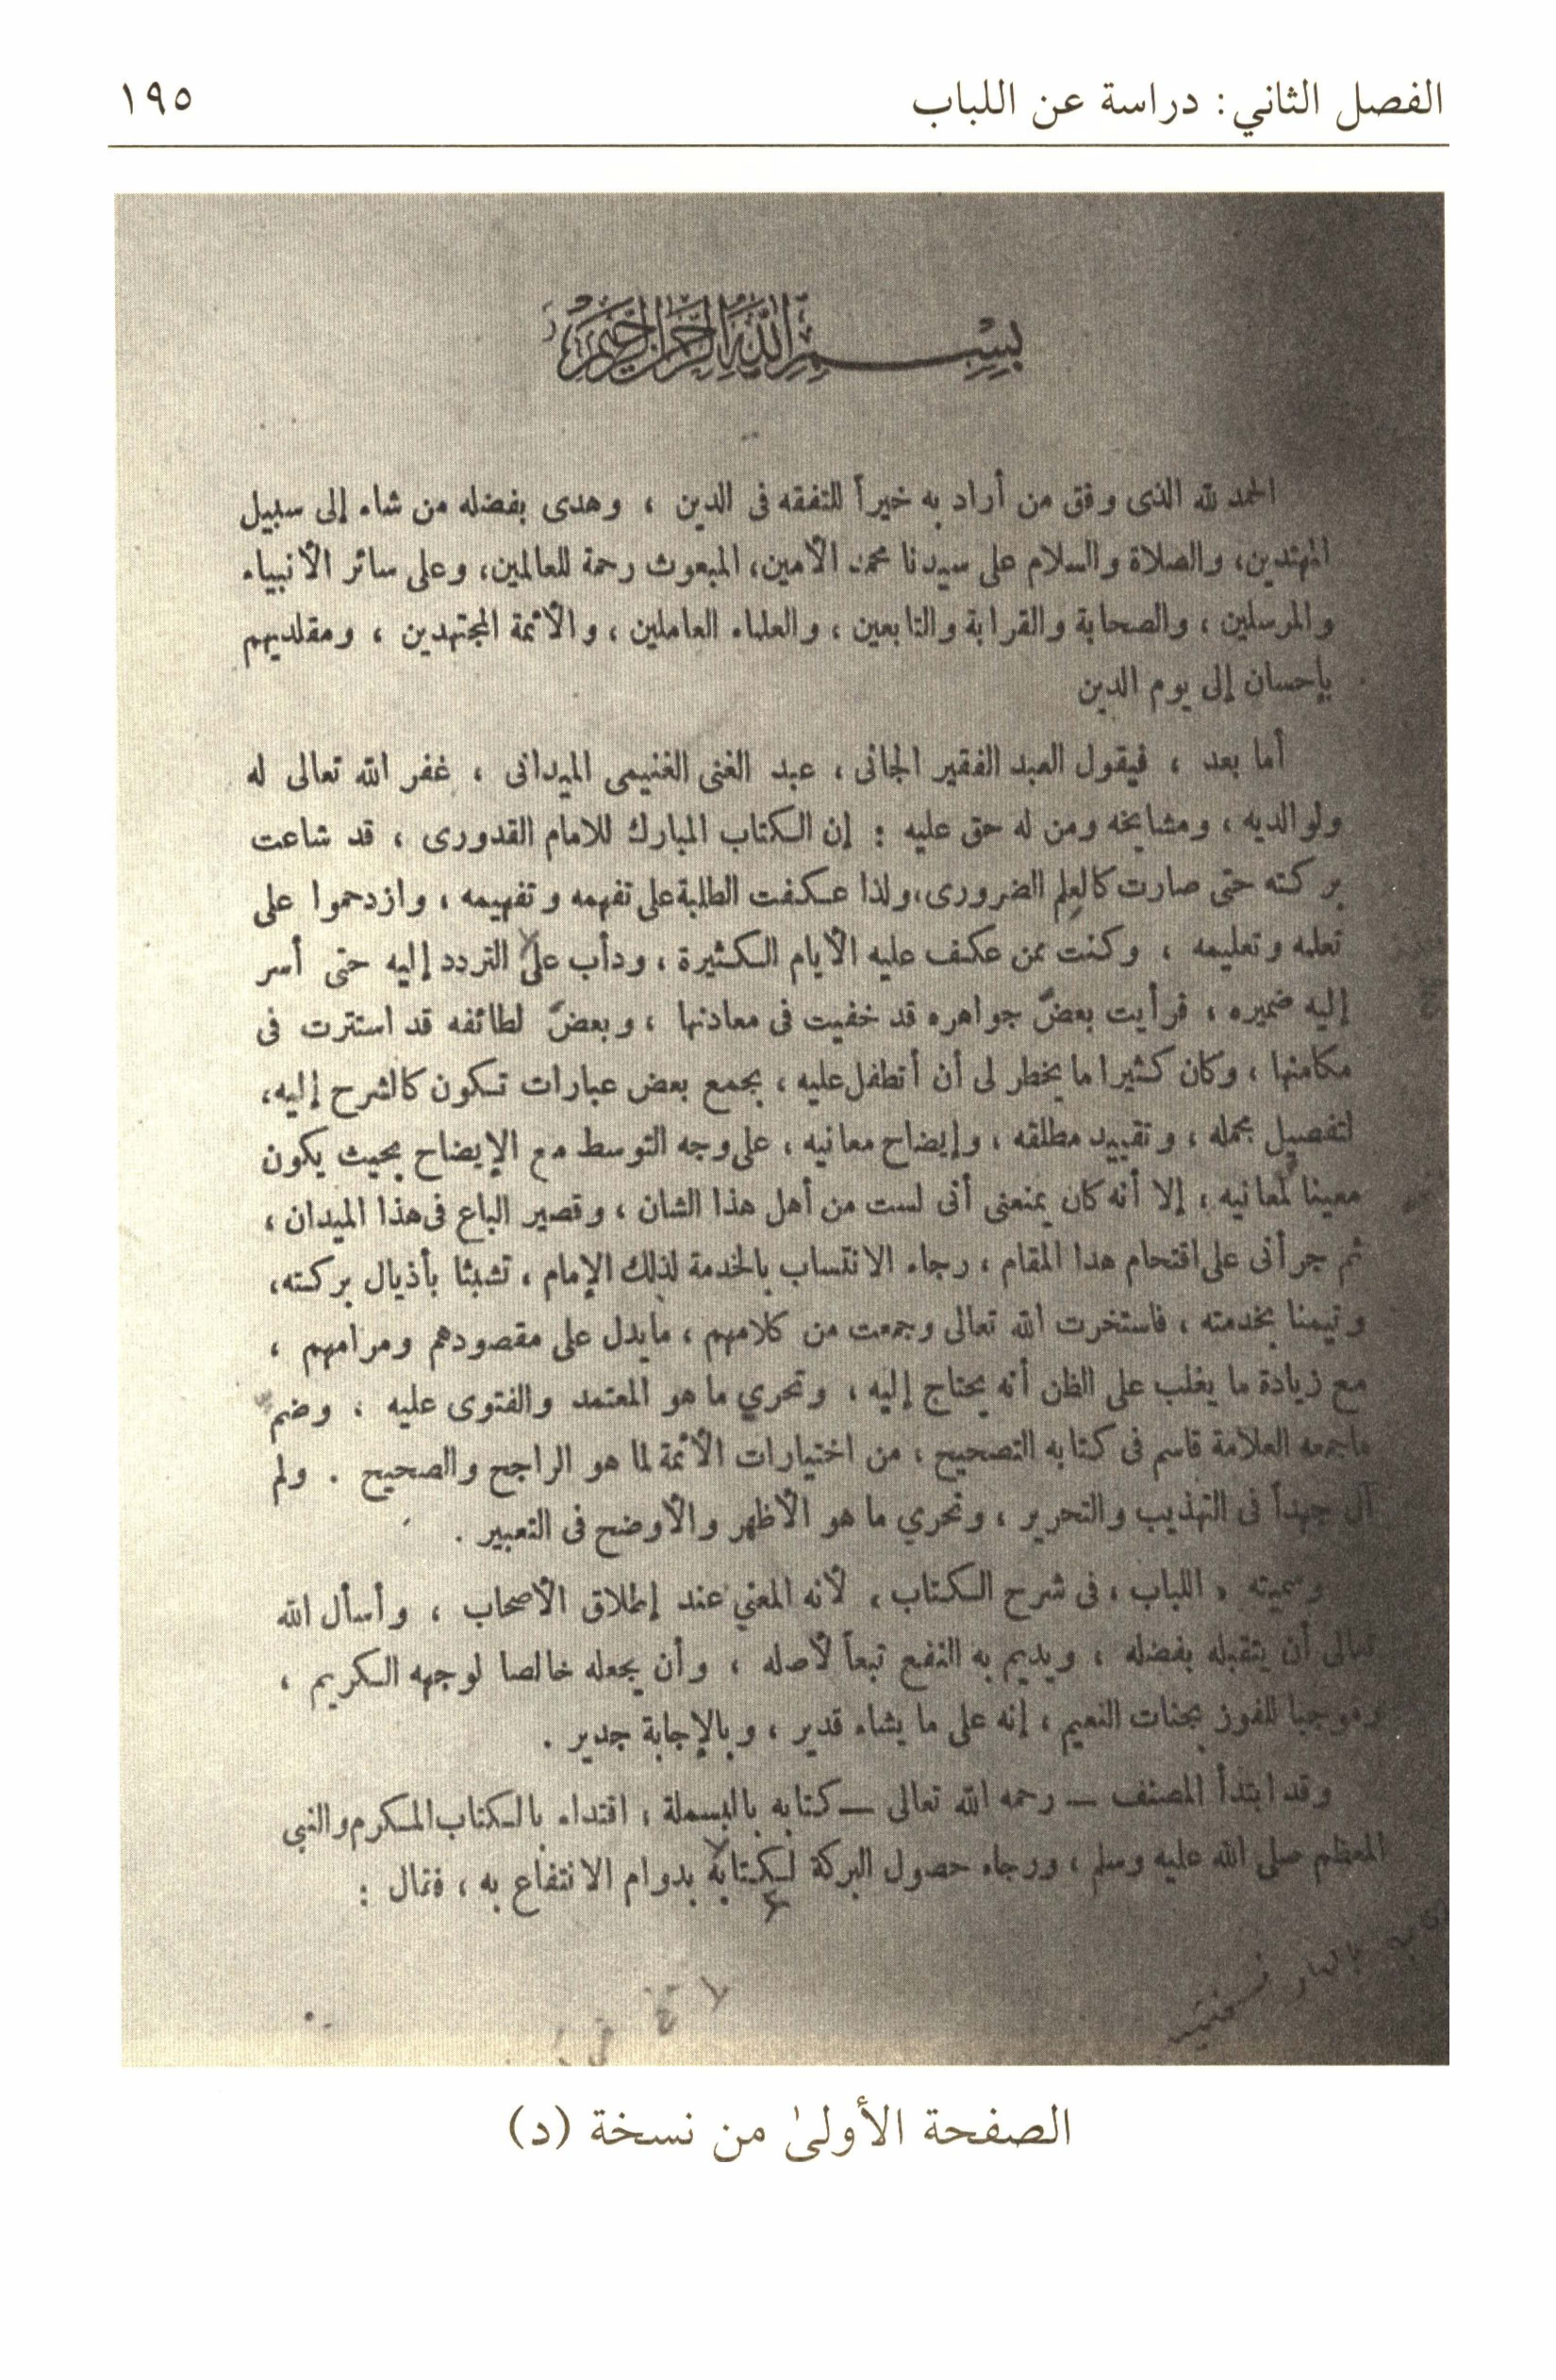 الفصل الثاني: دراسة عن اللباب
١٩٥
بسم الله الرحمن الرحيم
الحمد لله الذى وفق من أراد به خيراً للتفقه فى الدين ، وهدى بفضله من شاء إلى سبيل
المهتدين، والصلاة والسلام على سيدنا محمد الأمين، المبعوث رحمة للعالمين، وعلى سائر الأنبياء
والمرسلين ، والصحابة والقرابة والتابعين ، والعلماء العاملين ، والأئمة المجتهدين ، ومقلديهم
بإحسان إلى يوم الدين
أما بعد ، فيقول العبد الفقير الجانى ، عبد الغنى الغنيمى الميدانى ، غفر الله تعالى له
ولوالديه ، ومشايخه ومن له حق عليه : إن الكتاب المبارك للامام القدورى ، قد شاعت
بركته حتى صارت كالعلم الضرورى، ولذا عكفت الطلبة على تفهمه وتفهيمه ، وازدحموا على
تعلمه وتعليمه ، وكنت ممن عكف عليه الأيام الكثيرة ، ودأب على التردد إليه حتى أسر
إليه ضميره ، فرأيت بعضَ جواهره قد خفيت فى معادنها ، وبعضَ لطائفه قد استترت فى
مكامنها ، وكان كثيرا ما يخطر لى أن أتطفل عليه ، بجمع بعض عبارات تكون كالشرح إليه،
لتفصيل مجمله ، وتقييد مطلقه ، وإيضاح معانيه ، على وجه التوسط مع الإيضاح بحيث يكون
معينا لمعانيه ، إلا أنه كان يمنعنى أنى لست من أهل هذا الشان ، وقصير الباع فى هذا الميدان ،
ثم جرأنى على اقتحام هذا المقام ، رجاء الانتساب بالخدمة لذلك الإمام ، تشبثا بأذيال بركته،
وتيمنا بخدمته ، فاستخرت الله تعالى وجمعت من كلامهم ، مايدل على مقصودهم ومرامهم ،
مع زيادة ما يغلب على الظن أنه يحتاج إليه ، وتحري ما هو المعتمد والفتوى عليه ، وضم
ماجمعه العلامة قاسم فى كتابه التصحيح ، من اختيارات الأئمة لما هو الراجح والصحيح . ولم
آل جهداً فى التهذيب والتحرير ، وتحري ما هو الأظهر والأوضح فى التعبير .
وسميته « اللباب ، فى شرح الكتاب ، لأنه المعني عند إطلاق الأصحاب ، وأسأل الله
تعالى أن يتقبله بفضله ، ويديم به النفع تبعاً لأصله ، وأن يجعله خالصا لوجهه الكريم ،
وموجبا للفوز بجنات النعيم ، إنه على ما يشاء قدير ، وبالإجابة جدير .
وقد ابتدأ المصنف — رحمه الله تعالى — كتابه بالبسملة ، اقتداء بالكتاب المكرم والنبى
المعظم صلى الله عليه وسلم ، ورجاء حصول البركة لكتابة بدوام الانتفاع به ، فقال :
الصفحة الأولىٰ من نسخة (د)